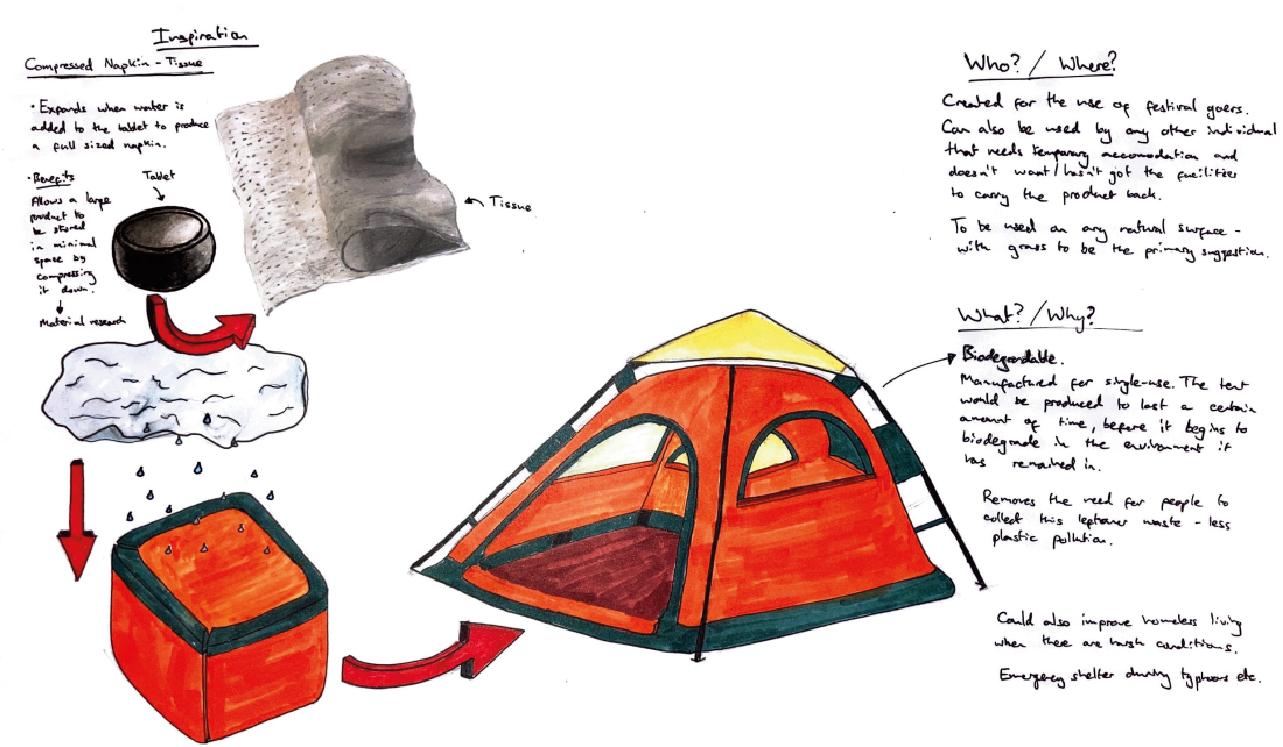 Inspiration
Compressed Napkin - Tissue
· Expands when water is
added to the tablet to produce
a full sized napkin.
· Benefits
Allows a large
product to
be stored
in minimal
space by
compressing
it down.
Material research
Tablet
Tissue
Who? / Where?
Created for the use of festival goers.
Can also be used by any other individual
that needs temporary accomodation and
doesn't want / hasn't got the facilities
to carry the product back.
To be used on any natural surface -
with grass to be the primary suggestion.
What? / Why?
Biodegradable.
Manufactured for single-use. The tent
would be produced to last a certain
amount of time, before it begins to
biodegrade in the environment it
has remained in.
Removes the need for people to
collect this leftover waste - less
plastic pollution.
Could also improve homeless living
when there are harsh conditions.
Emergency shelter during typhoons etc.